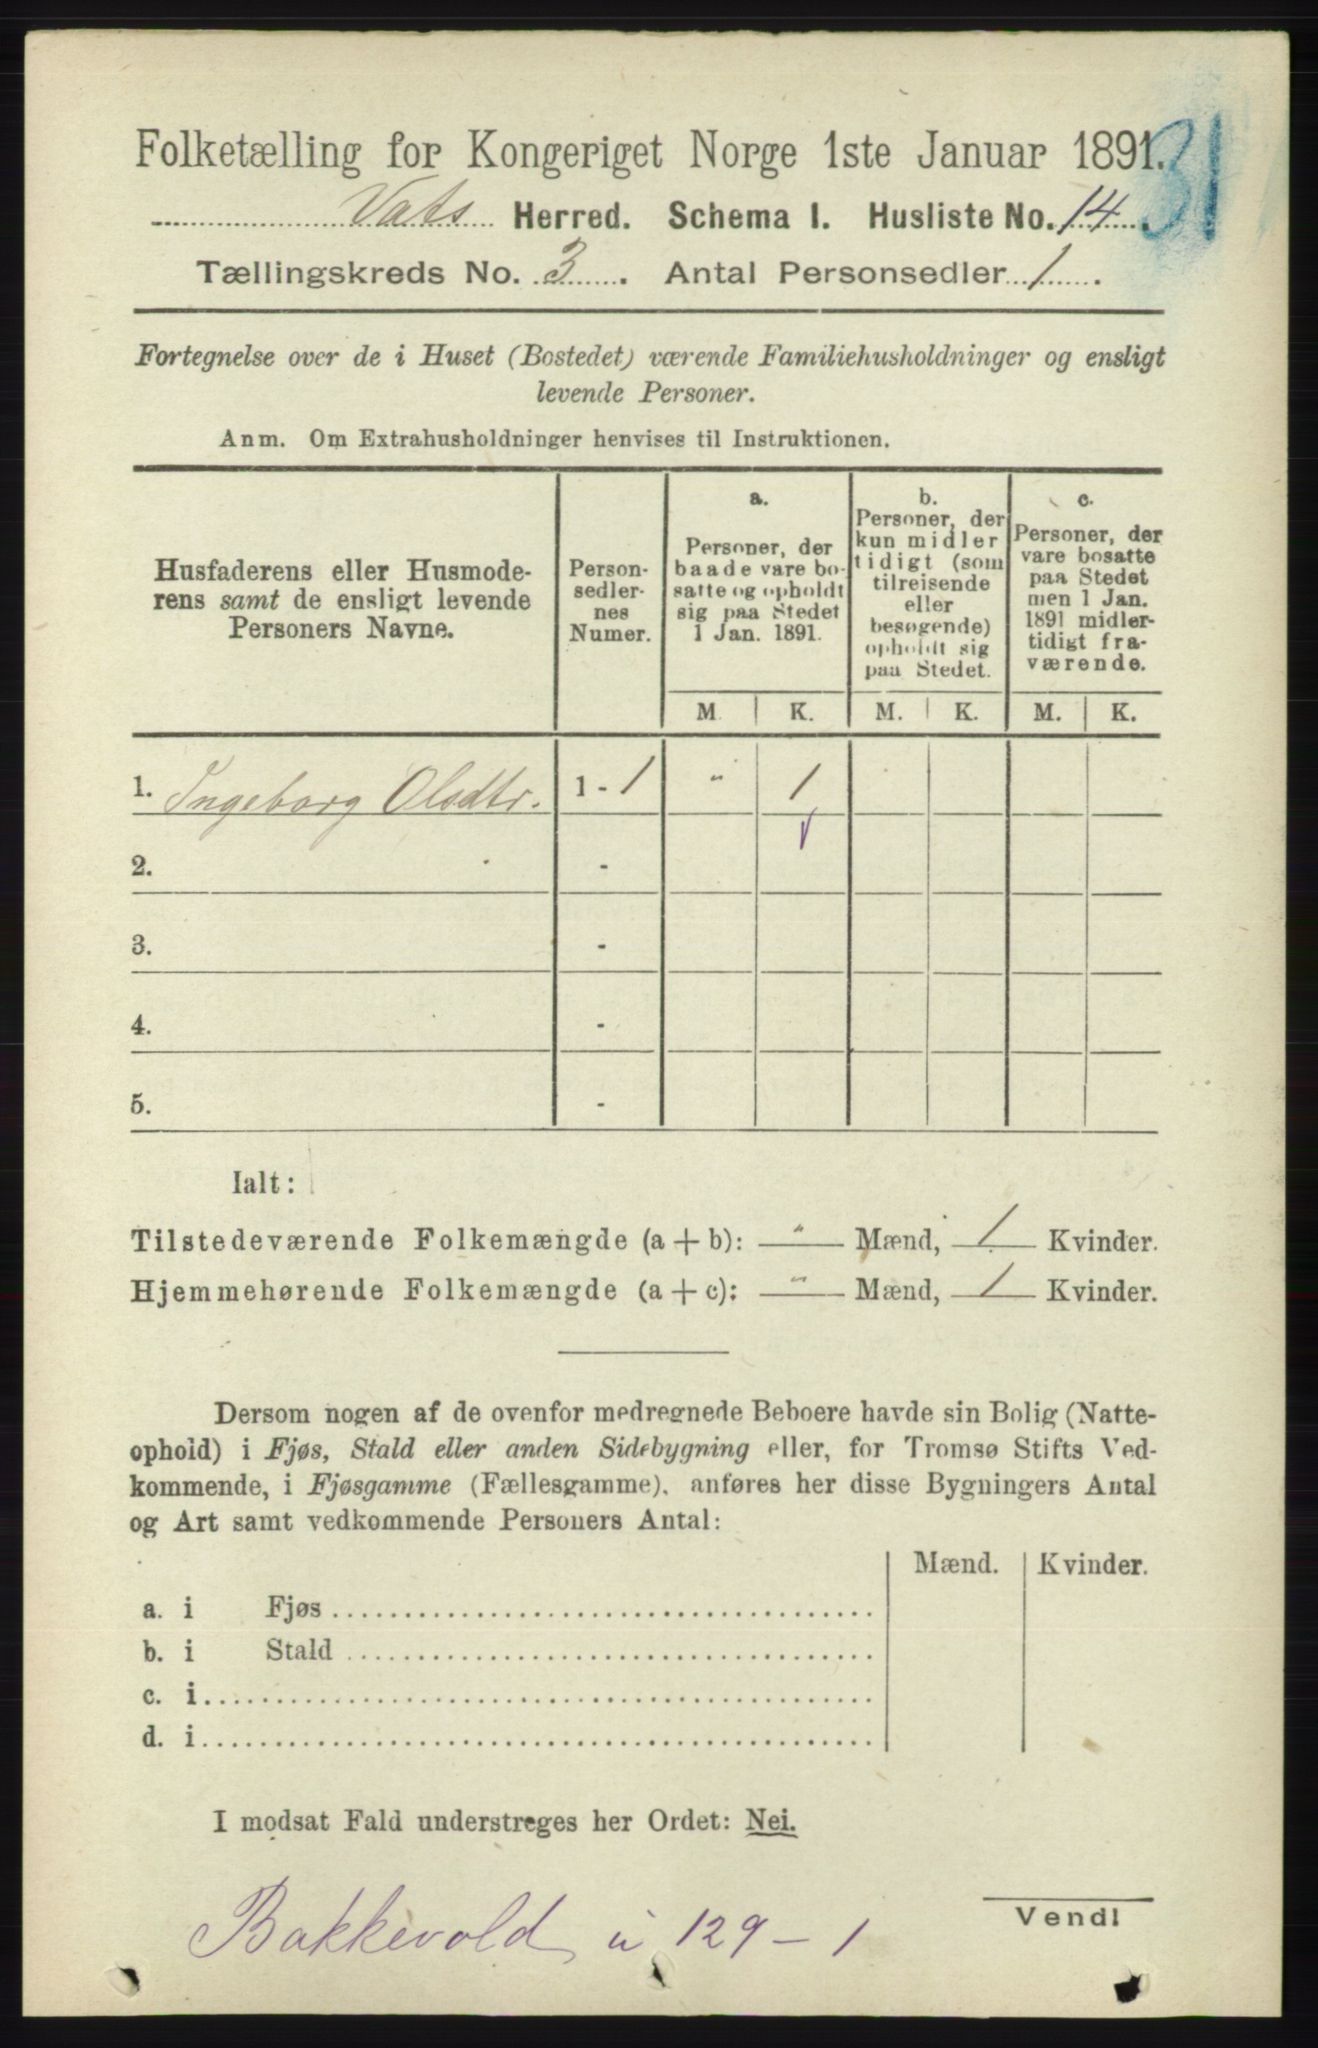 31
Folketælling for Kongeriget Norge 1ste Januar 1891.
Vats Herred. Schema I. Husliste No. 14.
Tællingskreds No. 3. Antal Personsedler 1.
Fortegnelse over de i Huset (Bostedet) værende Familiehusholdninger og ensligt
levende Personer.
Anm. Om Extrahusholdninger henvises til Instruktionen.
Husfaderens eller Husmode-
rens samt de ensligt levende
Personers Navne.
Person-
sedler-
nes
Numer.
a.
Personer, der
baade vare bo-
satte og opholdt
sig paa Stedet
1 Jan. 1891.
b.
Personer, der
kun midler
tidigt (som
tilreisende
eller
besøgende)
opholdt sig
paa Stedet.
c.
Personer, der
vare bosatte
paa Stedet
men 1 Jan.
1891 midler-
tidigt fra-
værende.
M. K. M. K. M. K.
1. Ingeborg Olsdtr. 1 - 1 " 1
2. -
3. -
4. -
5. -
Ialt:
Tilstedeværende Folkemængde (a + b): " Mænd, 1 Kvinder.
Hjemmehørende Folkemængde (a + c): " Mænd, 1 Kvinder.
Dersom nogen af de ovenfor medregnede Beboere havde sin Bolig (Natte-
ophold) i Fjøs, Stald eller anden Sidebygning eller, for Tromsø Stifts Ved-
kommende, i Fjøsgamme (Fællesgamme), anføres her disse Bygningers Antal
og Art samt vedkommende Personers Antal:
Mænd. Kvinder.
a. i Fjøs
b. i Stald
c. i
d. i
I modsat Fald understreges her Ordet: Nei.
Vendl
Bakkevold u 129 - 1